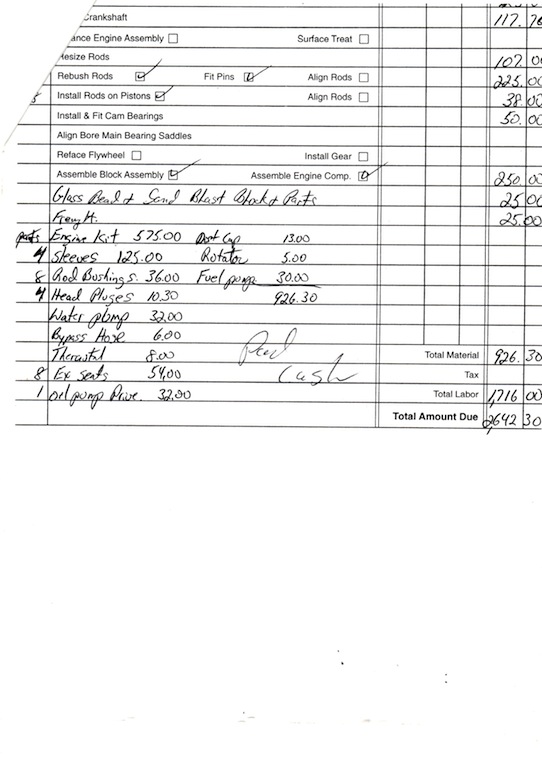 Crankshaft 117.70
ance Engine Assembly ☐ Surface Treat ☐
Resize Rods 107.00
Rebush Rods ☑ Fit Pins ☑ Align Rods ☐ 225.00
8 Install Rods on Pistons ☑ Align Rods ☐ 38.00
Install & Fit Cam Bearings 50.00
Align Bore Main Bearing Saddles
Reface Flywheel ☐ Install Gear ☐
Assemble Block Assembly ☑ Assemble Engine Comp. ☑ 250.00
Glass Bead & Sand Blast Block & Parts 25.00
25.00
parts Engine Kit 575.00 Dist Cap 13.00
4 Sleeves 125.00 Rotator 5.00
8 Rod Bushings. 36.00 Fuel pump 30.00
4 Head Pluges 10.30 926.30
Water pump 32.00
Bypass Hose 6.00 Paid
8.00 Total Material 926.30
8 Ex seats 54.00 Cash Tax
1 oil pump Drive. 32.00 Total Labor 1,716 00
Total Amount Due 2,642 30